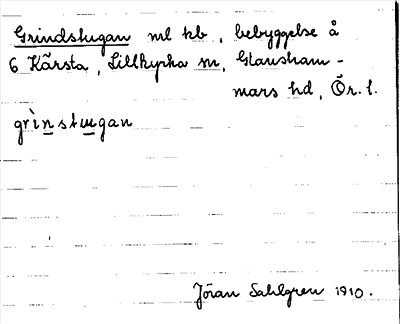 Grindstugan ml kb, bebyggelse å
6 Kärsta, Lillkyrka sn, Glansham-
mars hd, Ör. l.
grìnstugan
Jöran Sahlgren 1910.